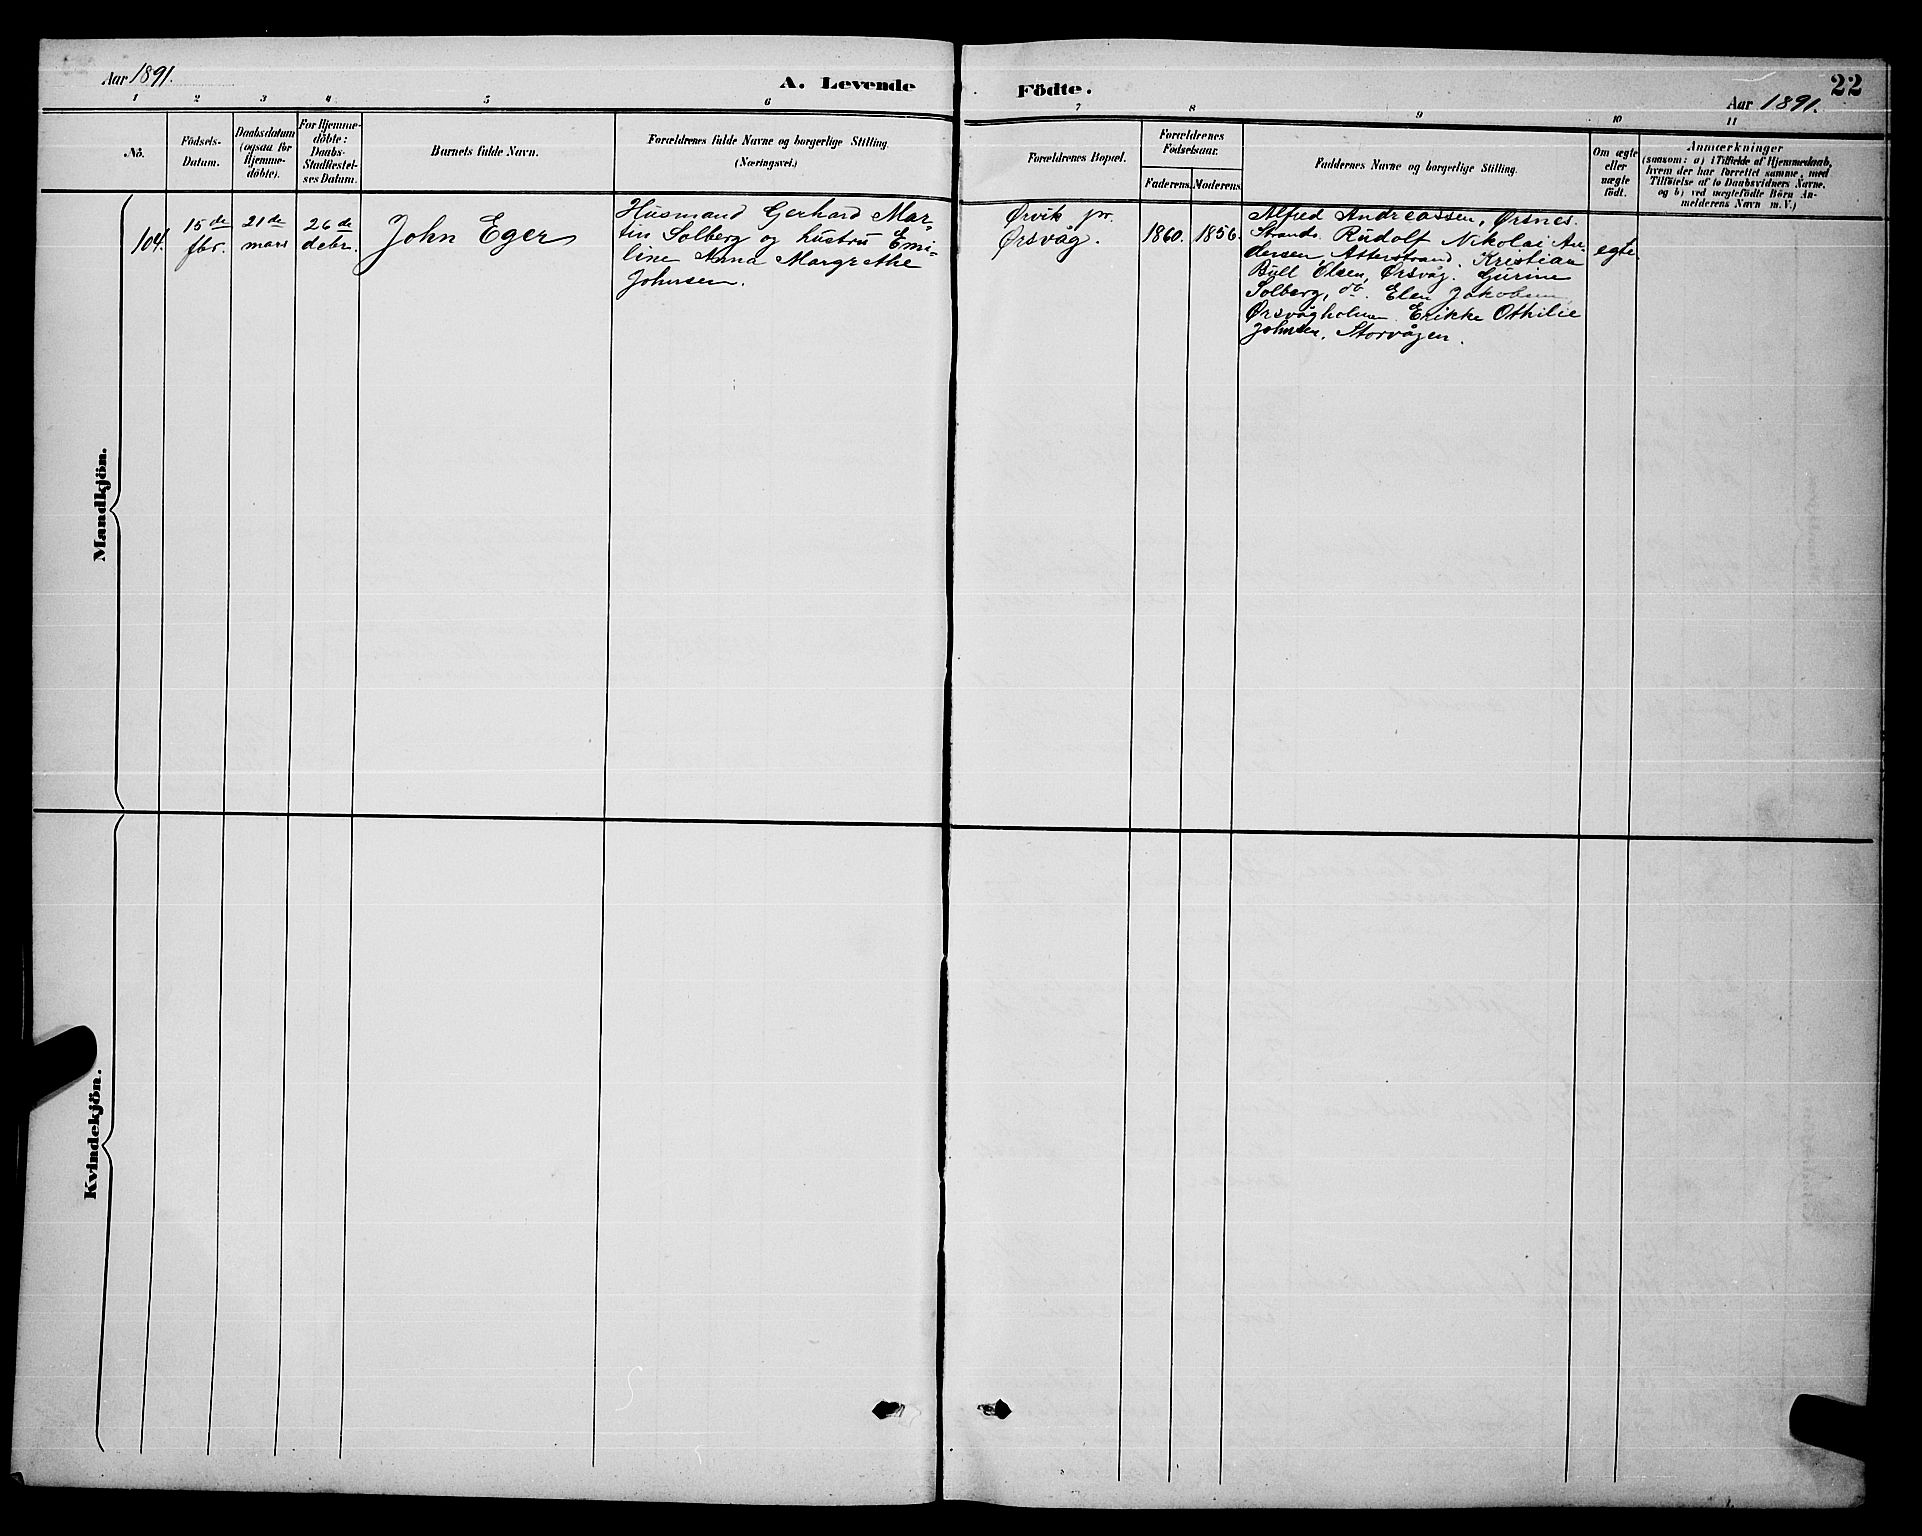 Aar 1891.
A. Levende
Födte.
22
Aar 1891.
1 2 3 4 5 6 7 8 9 10 11
No.
Födsels-
Datum.
Daabsdatum
(ogsaa for
Hjemme-
döbte).
For Hjemme-
döbte:
Daabs-
Stadfæstel-
ses Datum.
Barnets fulde Navn.
Forældrenes fulde Navne og borgerlige Stilling
(Næringsvei.)
Forældrenes Bopæl.
Forældrenes
Födselsaar.
Faderens. Moderens.
Faddernes Navne og borgerlige Stilling.
Om ægte
eller
uægte
födt.
Anmærkninger
(saasom: a) i Tilfælde af Hjemmedaab,
hvem der har forrettet samme, med
Tilföielse af to Daabsvidners Navne,
og b) ved uægtefödte Börn An-
melderens Navn m. V.)
Mandkjön.
104.
15de
fbr.
21de
mars
26de
debr.
John Eger
Husmand Gerhard Mar-
tin Solberg og hustru Emi-
line Anna Margrethe
Johnsen.
Ørvik pr.
Ørsvåg.
1860. 1856.
Alfred Andreassen, Ørsnes
Strand. Rudolf Nikolai An-
dersen, Atterstrand. Kristian
Bull Olsen, Ørsvåg. Gurine
Solberg, do. Elen Jakobsen,
Ørsvågholmen. Erikke Othilie
Johnsen, Storvågen.
egte.
Kvindekjön.